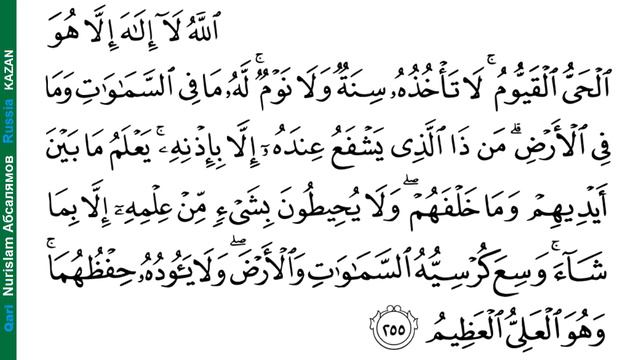 ٱللَّهُ لَآ إِلَٰهَ إِلَّا هُوَ
ٱلْحَىُّ ٱلْقَيُّومُ ۚ لَا تَأْخُذُهُۥ سِنَةٌ وَلَا نَوْمٌ ۚ لَّهُۥ مَا فِى ٱلسَّمَٰوَٰتِ وَمَا
فِى ٱلْأَرْضِ ۗ مَن ذَا ٱلَّذِى يَشْفَعُ عِندَهُۥٓ إِلَّا بِإِذْنِهِۦ ۚ يَعْلَمُ مَا بَيْنَ
أَيْدِيهِمْ وَمَا خَلْفَهُمْ ۖ وَلَا يُحِيطُونَ بِشَىْءٍ مِّنْ عِلْمِهِۦٓ إِلَّا بِمَا
شَآءَ ۚ وَسِعَ كُرْسِيُّهُ ٱلسَّمَٰوَٰتِ وَٱلْأَرْضَ ۖ وَلَا يَـُٔودُهُۥ حِفْظُهُمَا ۚ
وَهُوَ ٱلْعَلِىُّ ٱلْعَظِيمُ ٢٥٥
Qari Nurislam Абсалямов Russia KAZAN